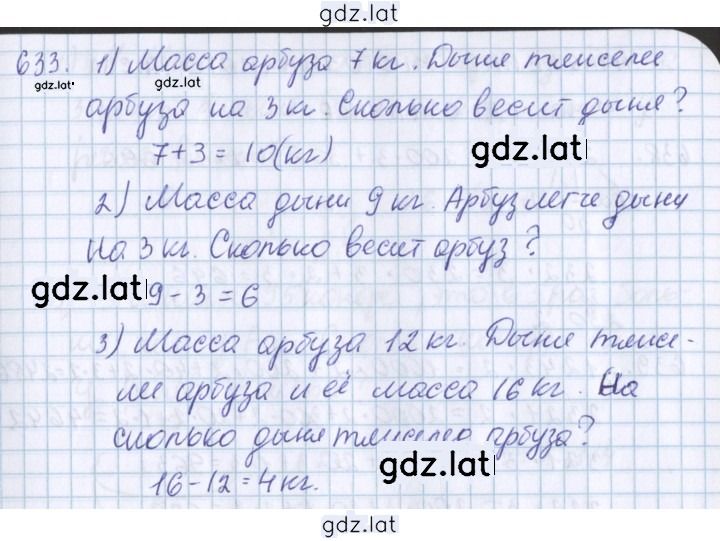 gdz.lat
633. 1) Масса арбуза 7 кг. Дыня тяжелее
gdz.lat gdz.lat
арбуза на 3 кг. Сколько весит дыня?
7+3 = 10(кг)
gdz.lat
2) Масса дыни 9 кг. Арбуз легче дыни
на 3 кг. Сколько весит арбуз?
gdz.lat
9 - 3 = 6
3) Масса арбуза 12 кг. Дыня тяже-
лее арбуза и её масса 16 кг. На
сколько дыня тяжелее арбуза?
gdz.lat
16-12 = 4 кг.
gdz.lat